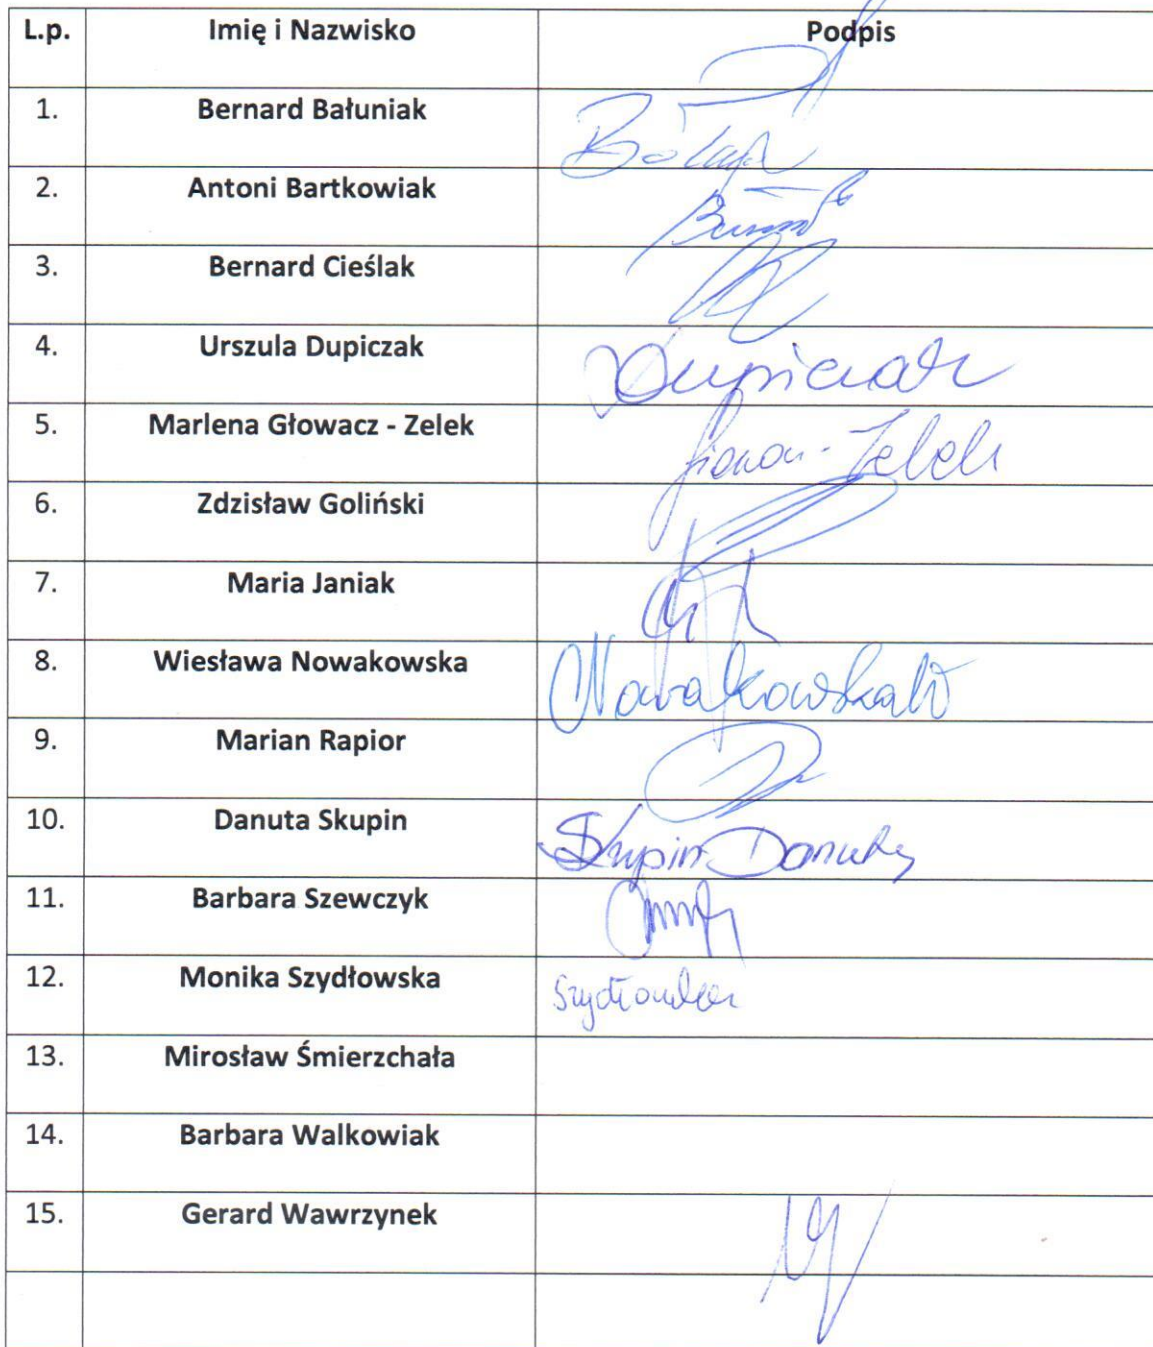 L.p. Imię i Nazwisko Podpis
1. Bernard Bałuniak
2. Antoni Bartkowiak
3. Bernard Cieślak
4. Urszula Dupiczak Dupiczak
5. Marlena Głowacz - Zelek Zelek
6. Zdzisław Goliński
7. Maria Janiak
8. Wiesława Nowakowska Nowakowska W
9. Marian Rapior
10. Danuta Skupin Skupin Danuta
11. Barbara Szewczyk
12. Monika Szydłowska Szydłowska
13. Mirosław Śmierzchała
14. Barbara Walkowiak
15. Gerard Wawrzynek